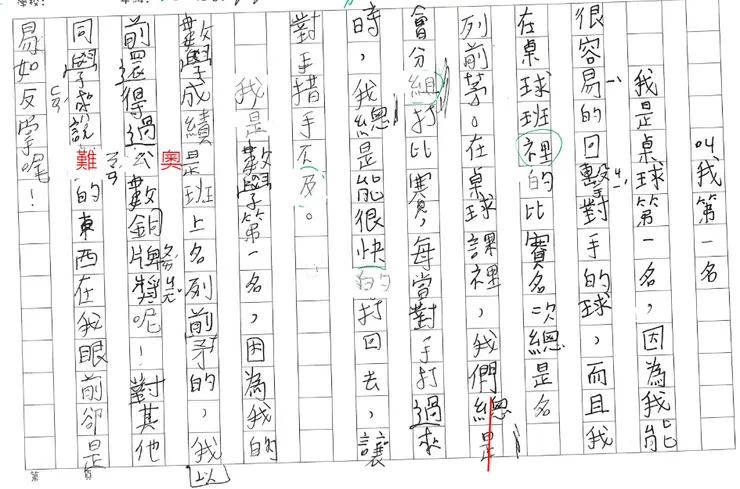 叫我第一名
我是桌球第一名，因為我能
很容易的回擊對手的球，而且我
在桌球班裡的比賽名次總是名
列前茅。在桌球課裡，我們總是
會分組打比賽，每當對手打過來
時，我總是能很快的打回去，讓
對手措手不及。
我是數學第一名，因為我的
數學成績是班上名列前矛的，我以
前還得過奧數銅牌獎呢！對其他
同學來說難的東西在我眼前卻是
易如反掌呢！
第 頁